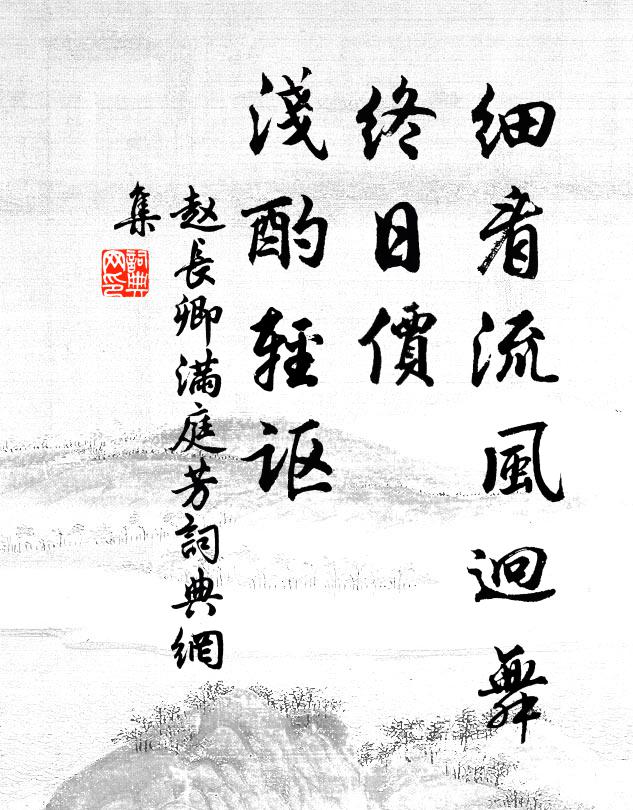 细看流风迴舞
终日價
淺酌輕讴
赵長卿满庭芳詞典網
集
詞典网印